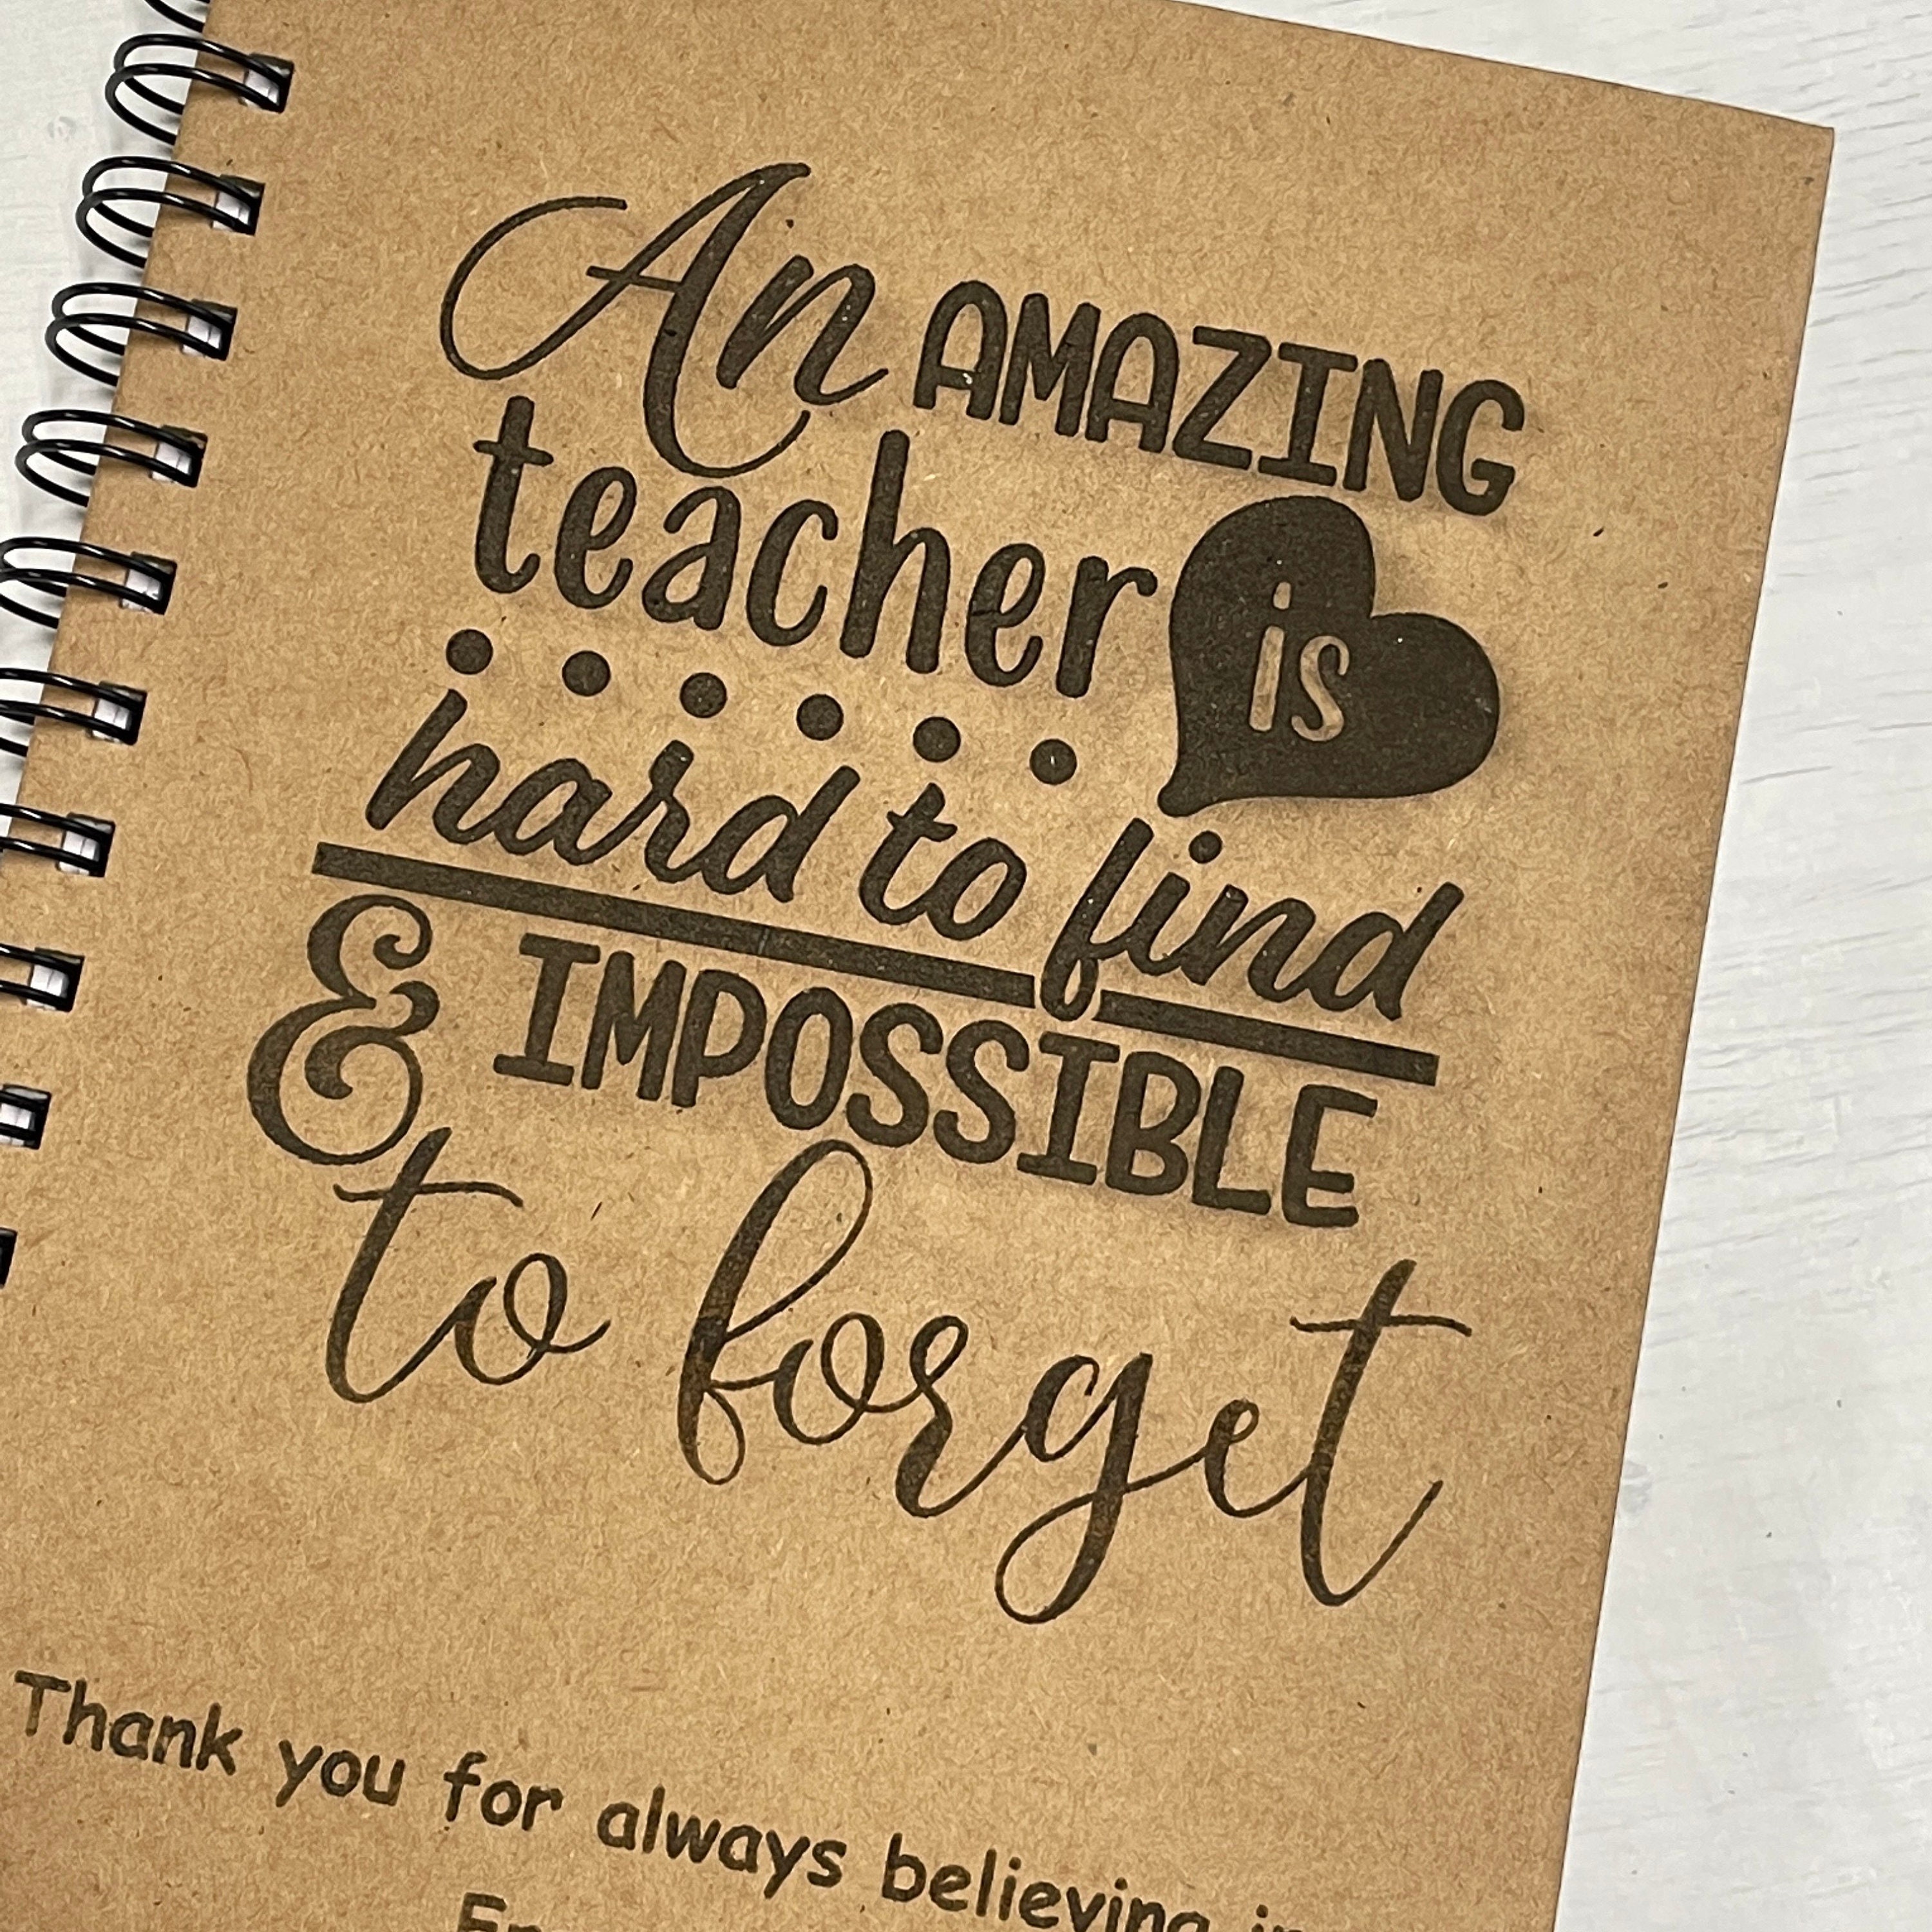 An AMAZING
teacher is
hard to find
& IMPOSSIBLE
to forget
Thank you for always believing